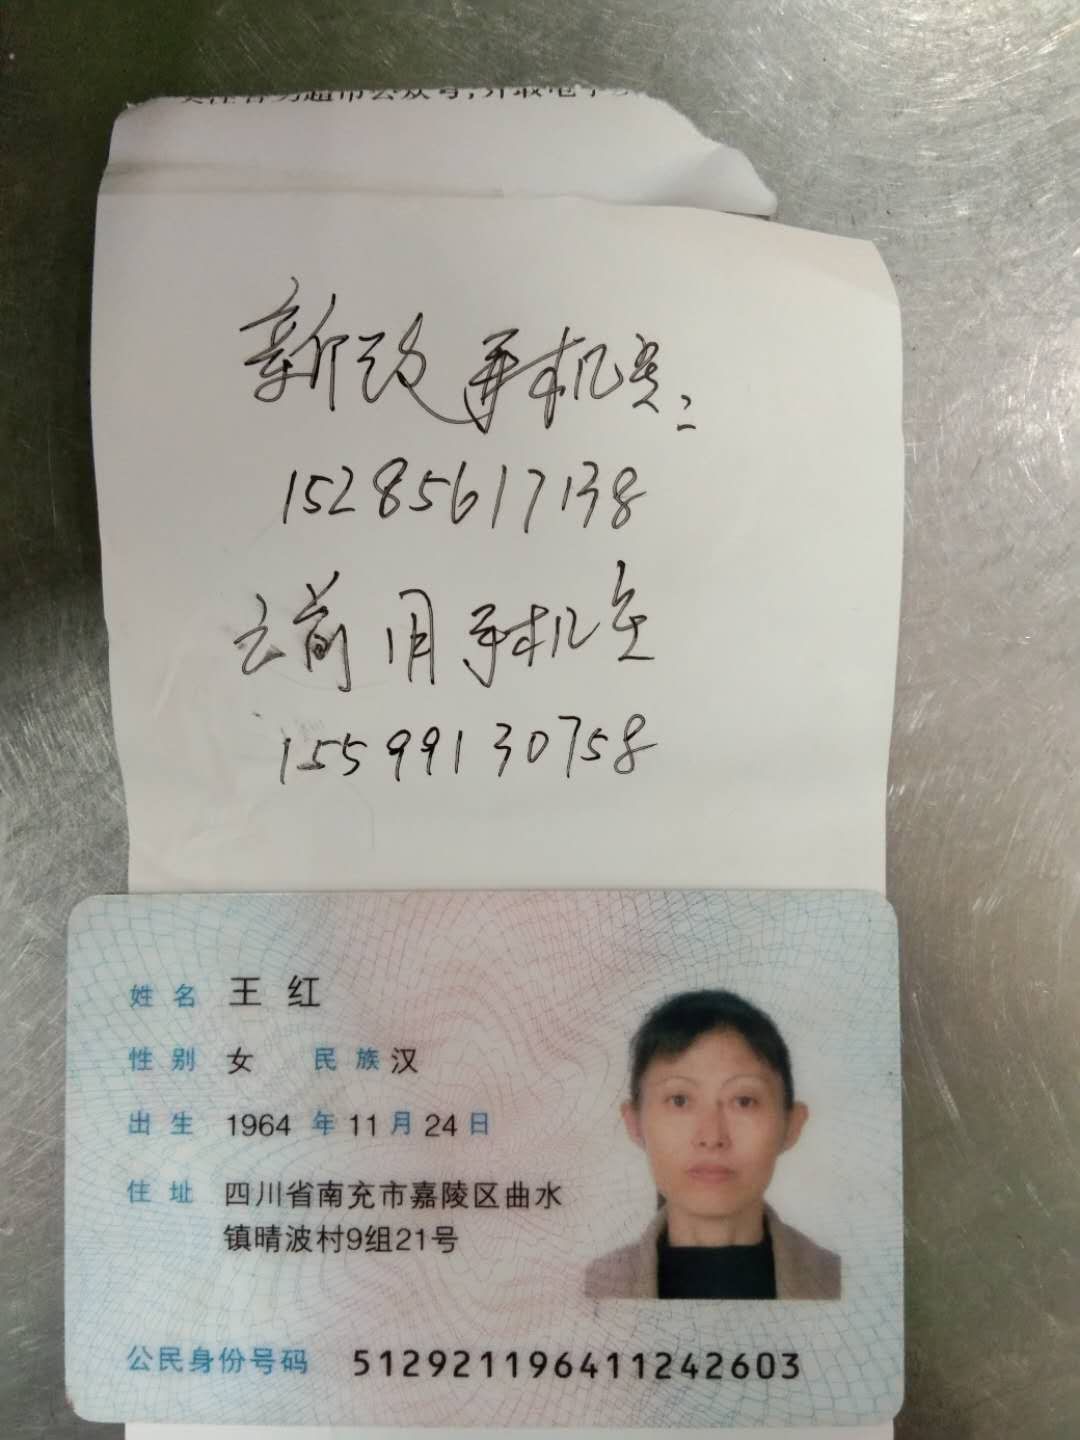 超市公众号，开取电子
新改手机号：
15285617138
之前用手机号
15599130758
姓名 王红
性别 女 民族 汉
出生 1964 年 11 月 24 日
住址 四川省南充市嘉陵区曲水
镇晴波村9组21号
公民身份号码 512921196411242603